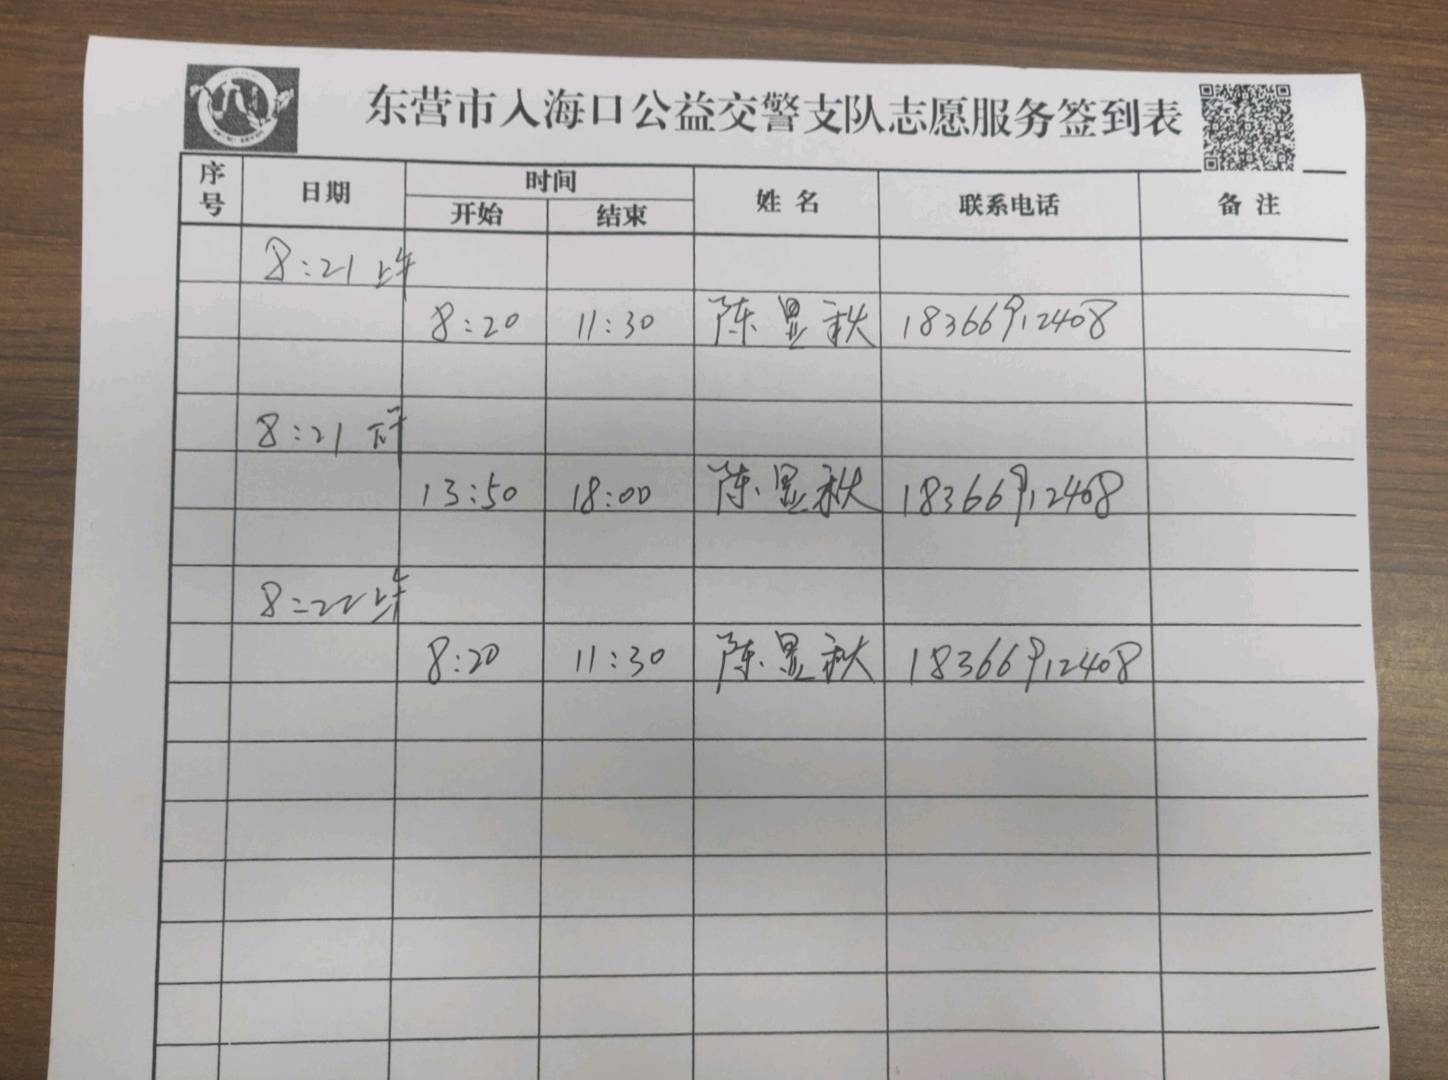 东营市入海口公益交警支队志愿服务签到表
序号 日期 时间 姓名 联系电话 备注
开始 结束
8:21 上午
8:20 11:30 陈显秋 18366912408
8:21 下午
13:50 18:00 陈显秋 18366912408
8:22 上午
8:20 11:30 陈显秋 18366912408